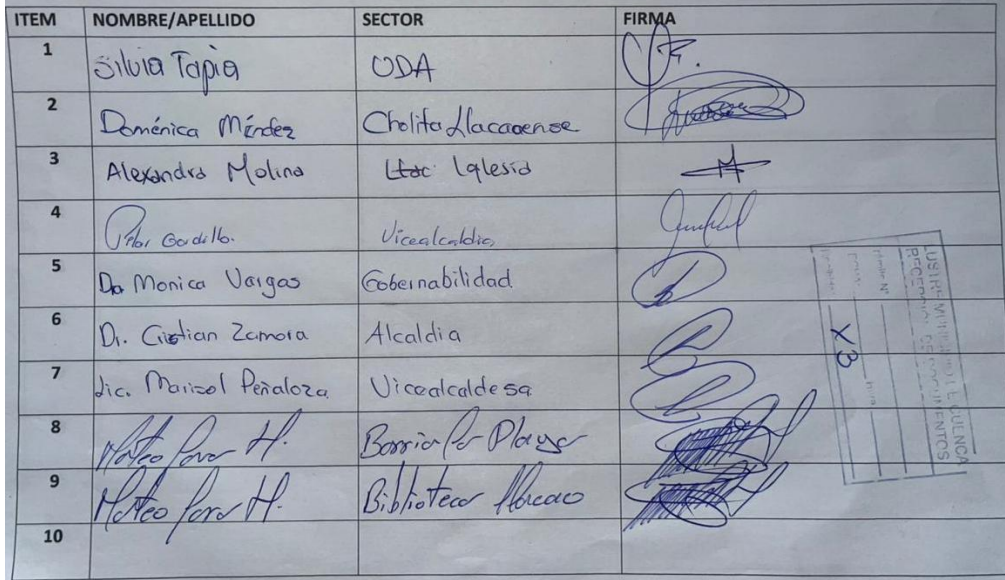 ITEM NOMBRE/APELLIDO SECTOR FIRMA
1 Silvia Tapia UDA
2 Doménica Méndez Cholita Llacaoense
3 Alexandra Molina Iglesia
4 Gordillo. Vicealcaldia
5 Da Monica Vargas Gobernabilidad
6 Dr. Cristian Zamora Alcaldia
7 Lic. Marisol Peñaloza Vicealcaldesa
8 Mateo H. Barrio
9 Mateo H. Biblioteca Llacao
10
RECEPCION DE DOCUMENTOS
X3